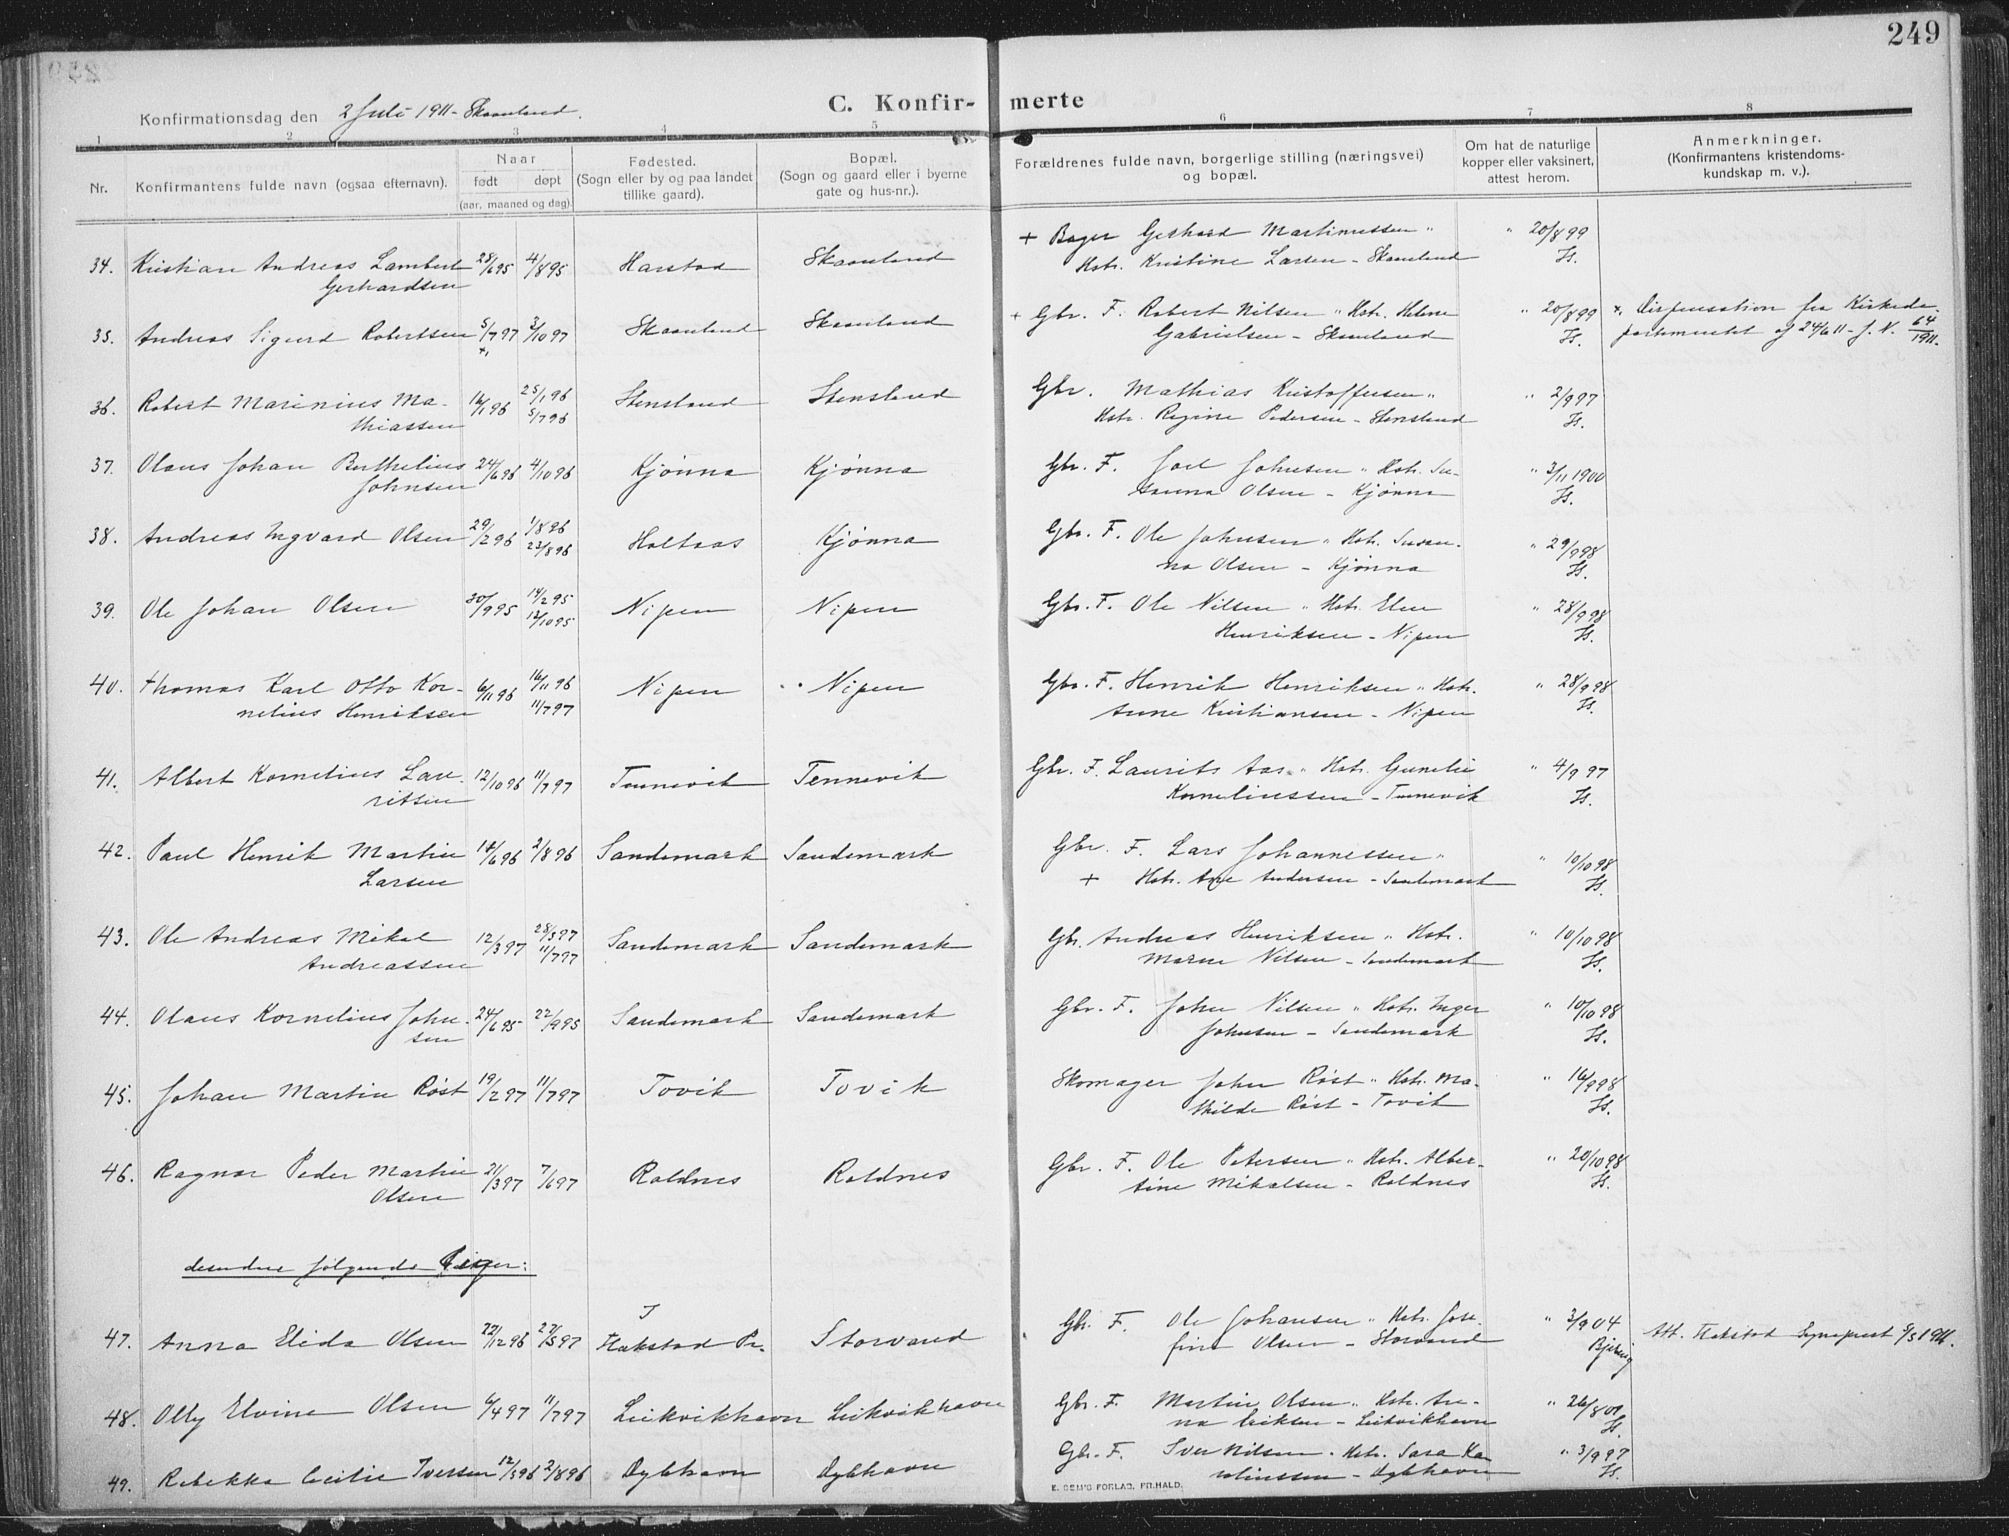 249
C. Konfir- merte
Konfirmationsdag den 2 Juli 1911 - Skaanland.
1 2 3 4 5 6 7 8
Nr. Konfirmantens fulde navn (ogsaa efternavn). Naar født døpt (aar, maaned og dag). Fødested. (Sogn eller by og paa landet tillike gaard). Bopæl. (Sogn og gaard eller i byerne gate og hus-nr.). Forældrenes fulde navn, borgerlige stilling (næringsvei) og bopæl. Om hat de naturlige kopper eller vaksinert, attest herom. Anmerkninger. (Konfirmantens kristendoms-kundskap m. v.).
+ Bager Gerhard Martinussen " " 20/8 99
34. Kristian Andreas Lambert 28/6 95 4/8 95 Harstad Skaanland Hstr. Kristine Larsen - Skaanland Js.
Gerhardsen
35. Andreas Sigurd Robertsen 5/7 97 3/10 97 Skaanland Skaanland + Gbr. F. Robert Nilsen " Hstr. Helene " 20/8 99 x, Dispensation fra Kirkede-
Gabrielsen - Skaanland Js. partementet af 24/6 11 - J. N. 64/1911.
36. Robert Marinius Ma- 16/1 96 25/1 96 Stensland Stensland Gbr. Mathias Kristoffersen " " 2/9 97
thiassen 5/7 96 Hstr. Regine Pedersen - Stensland Js.
37. Olaus Johan Berthelius 24/6 96 4/10 96 Kjønna Kjønna Gbr. F. Joel Johnsen " Hstr. Su- " 3/11 1900
Johnsen sanna Olsen - Kjønna Js.
38. Andreas Ingvard Olsen 29/2 96 1/8 96 Holtaas Kjønna Gbr. F. Ole Johnsen " Hstr. Susan- " 29/9 98
23/8 96 na Olsen - Kjønna Js.
39. Ole Johan Olsen 30/9 95 12/10 95 Nipen Nipen Gbr. F. Ole Nilsen " Hstr. Elen " 28/9 98
Henriksen - Nipen Js.
40. Thomas Karl Otto Kor- 6/11 96 16/11 96 Nipen Nipen Gbr. F. Henrik Henriksen " Hstr. " 28/9 98
nelius Henriksen 11/7 97 Anne Kristiansen - Nipen Js.
41. Albert Kornelius Lau- 12/10 96 11/7 97 Tennevik Tennevik Gbr. F. Laurits Aas " Hstr. " 4/9 97
ritsen Korneliussen - Tennevik Js.
42. Paul Henrik Martin 14/6 96 2/8 96 Sandemark Sandemark Gbr. F. Lars Johannessen " " 10/10 98
Larsen + Hstr. Ane Andersen - Sandemark Js.
43. Ole Andreas Mikal 12/3 97 28/3 97 Sandemark Sandemark Gbr. Andreas Henriksen " Hstr. " 10/10 98
Andreassen 11/7 97 Maren Nilsen - Sandemark Js.
44. Olaus Kornelius John- 24/6 95 22/9 95 Sandemark Sandemark Gbr. F. John Nilsen " Hstr. Inger " 10/10 98
sen Johnsen - Sandemark Js.
45. Johan Martin Røst 19/2 97 11/7 97 Tovik Tovik Skomager John Røst " Hstr. Ma- " 16/9 98
thilde Røst - Tovik Js.
46. Ragnar Peder Martin 21/3 97 7/6 97 Roldnes Roldnes Gbr. F. Ole Petersen " Hstr. Alber- " 20/10 98
Olsen tine Mikalsen - Roldnes Js.
desuden følgende Piger:
47. Anna Elida Olsen 22/12 96 27/5 97 Flakstad Pr. Storvand Gbr. F. Ole Johansen " Hstr. Jose- " 3/9 04 Att. Flakstad Sogneprest 9/5 1911.
fine Olsen - Storvand
48. Olly Elvine Olsen 6/4 97 11/7 97 Leikvikhavn Leikvikhavn Gbr. F. Martin Olsen " Hstr. An- " 26/8
na Eriksen - Leikvikhavn Js.
49. Rebekka Cecilie Iversen 12/5 96 2/8 96 Dybhavn Dybhavn Gbr. F. Iver Nilsen " Hstr. Sara Ka- " 3/9 97
rolinssen - Dybhavn Js.
E. SEM'S FORLAG, FR.HALD.